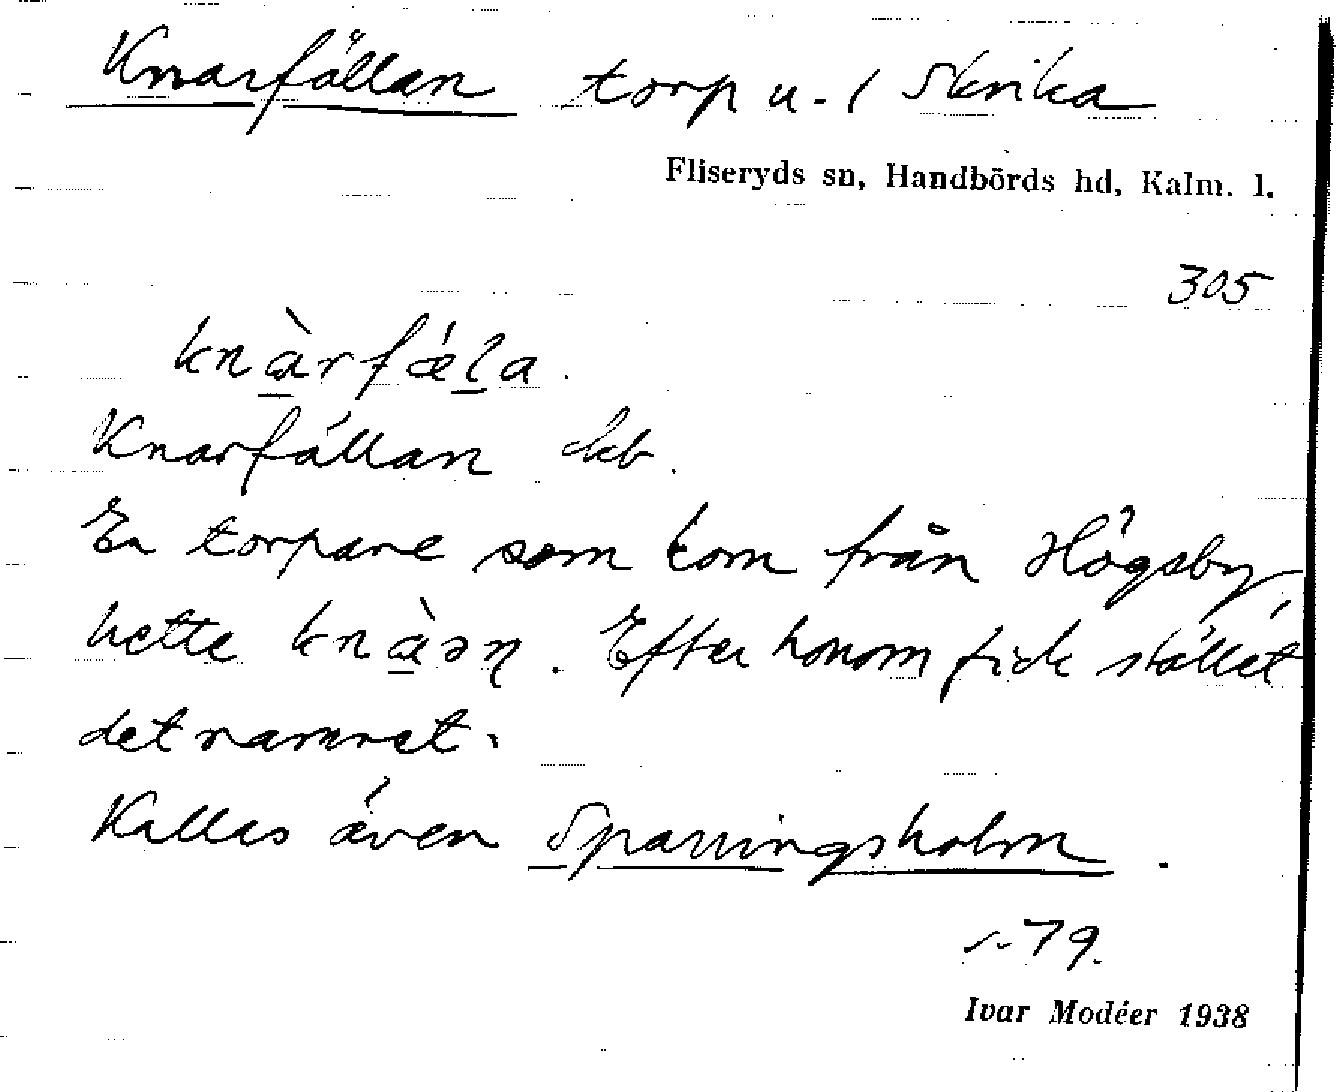 Knarfällan torp u. 1 Skrika
Fliseryds sn, Handbörds hd, Kalm. l.
305
knà̲rfǽl̲a.
Knarfällan kb.
En torpare som kom från Högsby,
hette knà̲əɳ. Efter honom fick stället
det namnet.
Kallas även Sparringsholm.
s. 79.
Ivar Modéer 1938